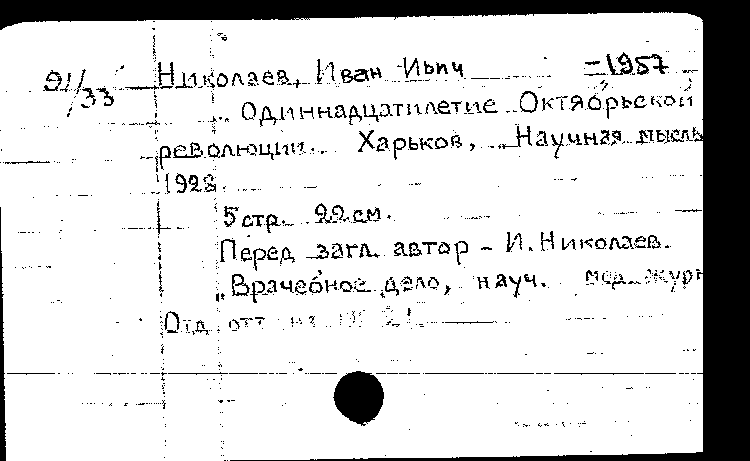 91/33 Николаев, Иван Ильич –1957
Одиннадцатилетие Октябрьской
революции. Харьков, „Научная мысль
1928.
5 стр. 22 см.
Перед загл. автор – И. Николаев.
„Врачебное дело, науч. мед. журн
Отд. отт. из № 21.